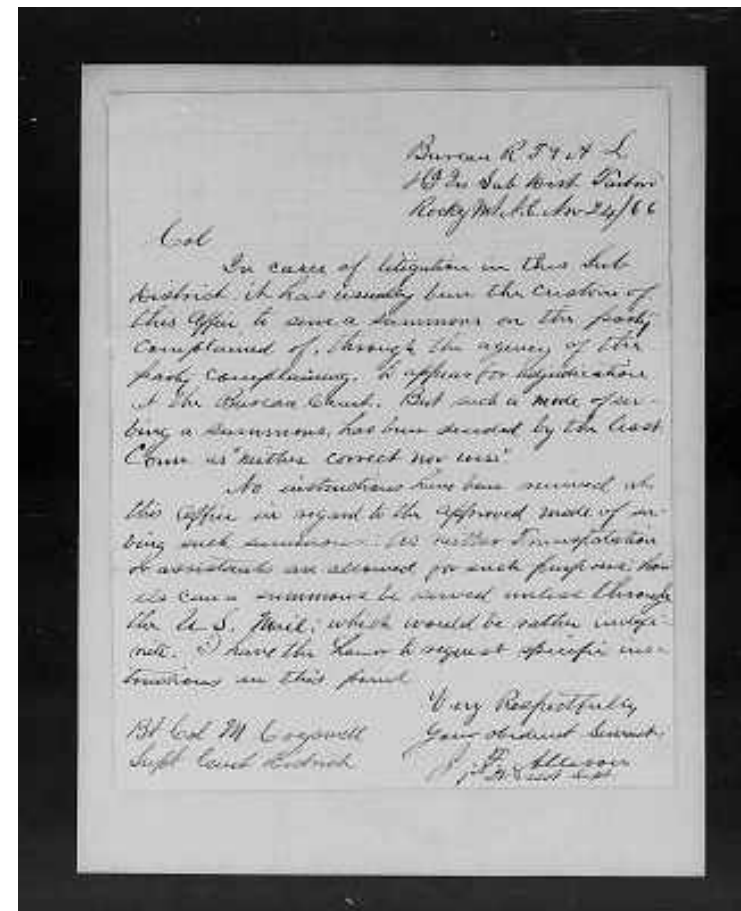 Bureau R F & A L
Hd Qrs Sub Dist Tarboro
Rocky Mt N.C. Nov 24/66
Col
In cases of litigation in this Sub
District it has usually been the custom of
this Office to serve a summons on the party
complained of, through the agency of the
party complaining, to appear for adjudication
at the Bureau Court. But such a mode of ser-
ving a summons, has been decided by the
Court as "neither correct nor wise".
No instructions have been received at
this Office in regard to the approved mode of ser-
ving such summons. As neither Transportation
or assistants are allowed for such purpose how
else can a summons be served unless through
the U.S. Mail; which would be rather indefi-
nite. I have the honor to request specific ins-
tructions in this point
Very Respectfully
Your obedient Servant
Bt Col M Cogswell
Supt Cent District
Allison
Asst Supt